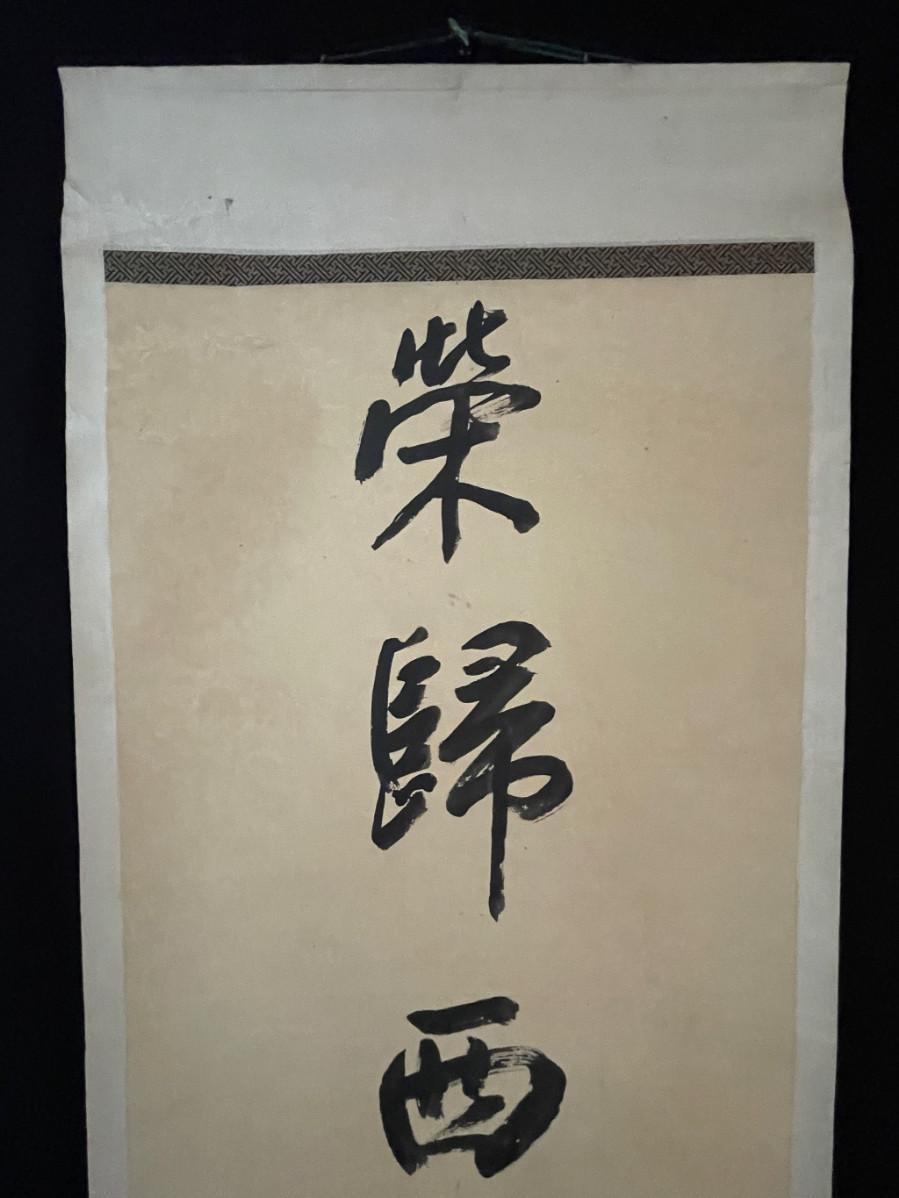 榮歸西